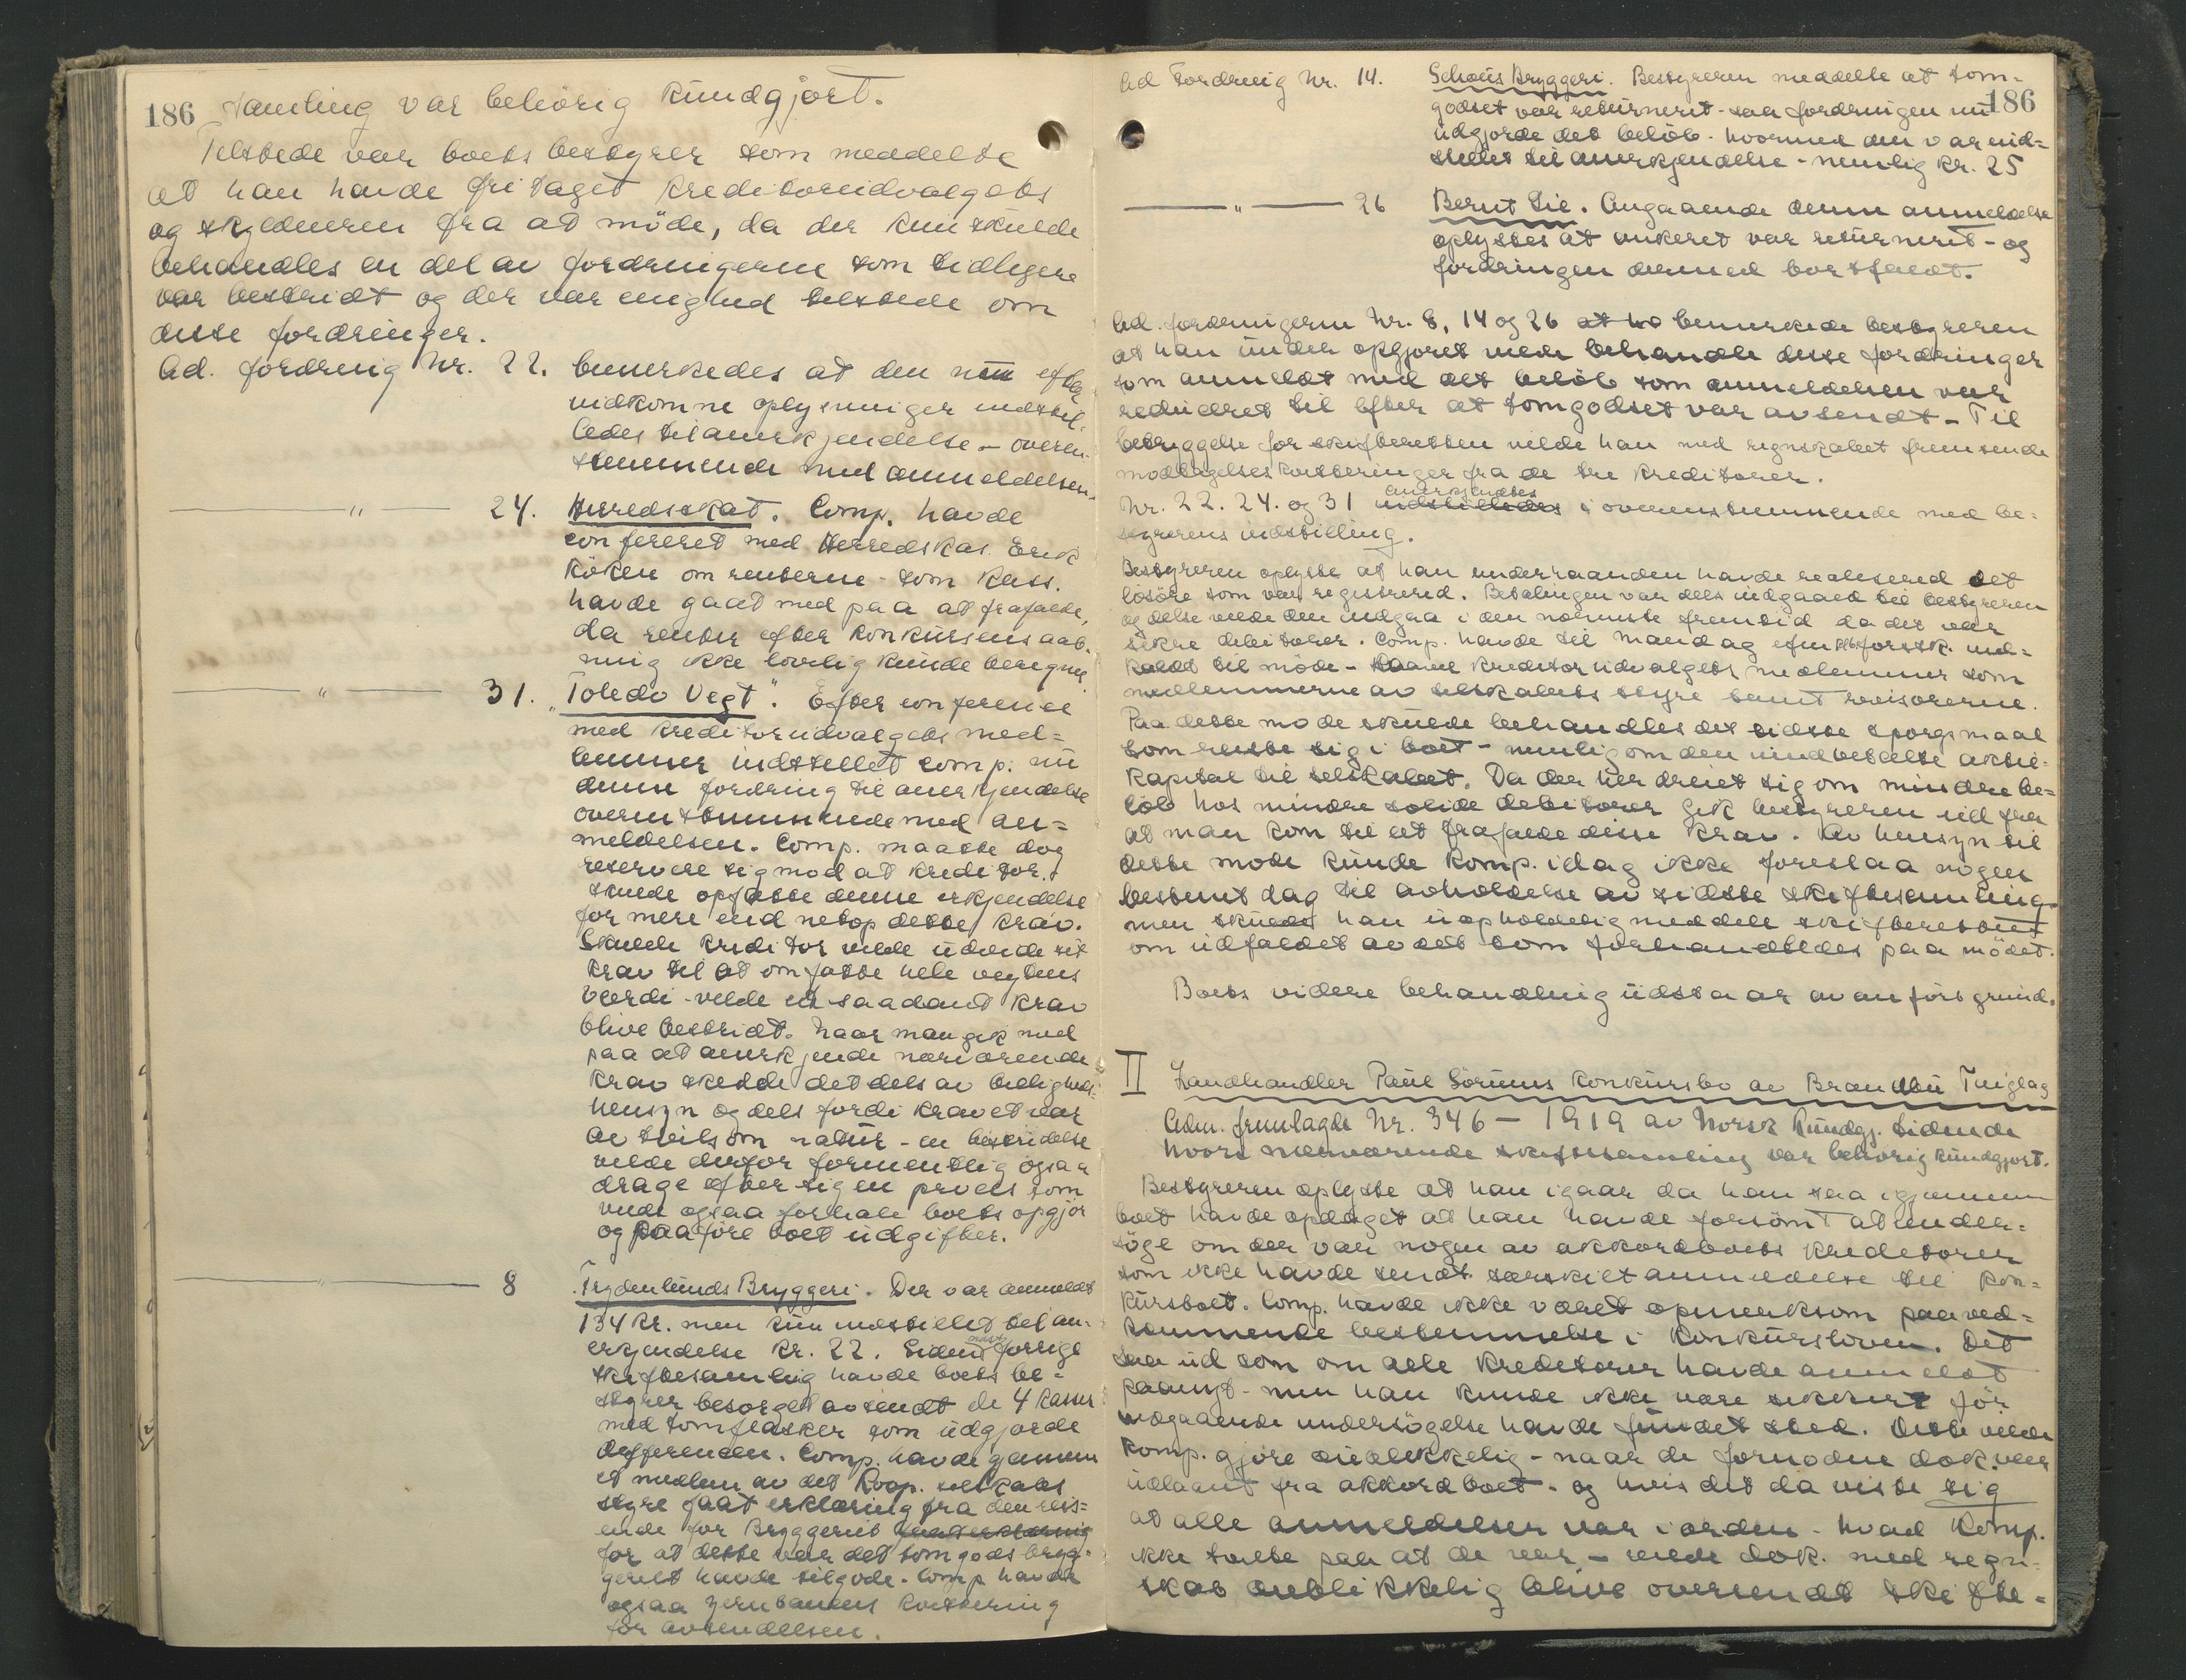 186 samling var behörig kundgjort.
Tilstede var boets bestyrer som meddelte
at han havde fritaget kreditorudvalgets
og skyldneren fra at möde, da der kun skulde
behandles en del av fordringerne som tidligere
var bestridt og der var enighed tilstede om
disse fordringer.
Ad. fordring Nr. 22. bemerkedes at den nu efter
indkomne oplysninger indstil-
ledes til anerkjendelse - overen-
stemmende med anmeldelsen.
—— " —— 24. Herredsskat. Comp. havde
confereret med Herredskas. Erik
Köken om renterne - som Kass.
havde gaat med paa at frafalde,
da renter efter konkursens aab-
ning ikke lovlig kunde beregnes
—— " —— 31. "Toledo Vegt". Efter conference
med kreditorudvalgets med=
lemmer indstillet comp. nu
denne fordring til anerkjendelse
overenstemmende med an=
meldelsen. Comp. maatte dog
reservere sig mod at kreditor.
skulde opfatte denne erkjendelse
for mere end netop dette krav.
Skulde kreditor ville udvide sit
krav til at omfatte hele vegtens
værdi - vilde et saadant krav
blive bestridt. Naar man gik med
paa at anerkjende nærværende
krav skedde det dels av billigheds=
hensyn og dels fordi kravet var
av tvilsom natur - en bestridelse
vilde derfor formentlig ogsaa
drage efter sig en proces som
vilde ogsaa forhale boets opgjör
og paaföre boet udgifter.
—— " —— 8 Frydenlunds Bryggeri. Der var anmeldt
134 kr. men kun indstillet til an-
erkjendelse kr. 22. Siden næst forrige
skiftesamling havde boets be=
styrer besörget avsendt de 4 kasser
med tomflasker som udgjorde
differencen. Comp. havde gjennem
et medlem av det Koop. selskabs
styre faat erklæring fra den reis=
ende for Bryggeriet faat erklæring
for at dette var det tomgods bryg=
geriet havde tilgode. Comp havde
ogsaa jernbanens kvittering
for avsendelsen.
Ad Fordring Nr. 14. Schous Bryggeri. Bestyreren meddelte at tom=
186
godset var returneret - saa fordringen nu
udgjorde det belöb - hvormed den var ind=
stillet til anerkjendelse - nemlig kr. 25
—— " —— 26 Bernt Lie. Angaaende denne anmeldelse
oplystes at ankeret var returneret - og
fordringen dermed bortfaldt.
Ad. fordringerne Nr. 8, 14 og 26 at ha bemerkede bestyreren
at han under opgjöret vilde behandle disse fordringer
som anmeldt med det belöb som anmeldelsen var
reduceret til efter at tomgodset var avsendt - Til
betryggelse for skifteretten vilde han med regnskabet fremsende
modtagelseskvitteringer fra de tre kreditorer.
anerkjendtes
Nr. 22. 24. og 31 indstilledes i overenstemmende med be=
styrerens indstilling.
Bestyreren oplyste at han underhaanden havde realiseret det
lösöre som var registrered. Betalingen var dels indgaaed til bestyreren
og dette vilde den indgaa i den nærmeste fremtid da det var
sikre debitorer. Comp. havde til Mandag förstk. ind=
kaldt til möde - saavel kreditorudvalgets medlemmer som
medlemmerne av selskabets styre samt revisorerne.
Paa dette möde skulde behandles det sidste spörgsmaal
som reiste sig i boet - nemlig om den uindbetalte aktie-
kapital til selskabet. Da der her dreiet sig om mindre be=
löb hos mindre solide debitorer gik bestyreren ud fra
at man kom til at frafalde disse krav. Av hensyn til
dette möde kunde komp. idag ikke foreslaa nogen
bestemt dag til avholdelse av sidste skiftesamling.
men skulde han uopholdelig meddele skifteretten
om udfaldet av det som forhandledes paa mödet.
Boets videre behandling udstaar av anförte grund.
II Landhandler Paul Sörums konkursbo av Brandbu Tinglag
Adm. fremlagde Nr. 346 - 1919 av Norsk Kundgj. tidende
hvori nærværende skiftesamling var behörig kundgjort.
Bestyreren oplyste at han igaar da han saa igjennem
boet havde opdaget at han havde forsömt at under=
söge om der var nogen av akkordboets kreditorer
som ikke havde sendt særskilt anmeldelse til kon=
kursboet. Comp. havde ikke været opmerksom paa ved=
kommende bestemmelse i konkursloven. Det
saa ud som om alle kreditorer havde anmeldt
paanyt - men han kunde ikke være sikker för
indgaaende undersögelse havde fundet sted. Dette vilde
Komp. gjöre öieblikkelig - naar de fornödne dok. var
udlaant fra akkordboet - og hvis det da viste sig
at alle anmeldelser var i orden - hvad Komp.
ikke tvilte paa at de var - vilde dok. med regn-
skab öieblikkelig blive oversendt skifte=